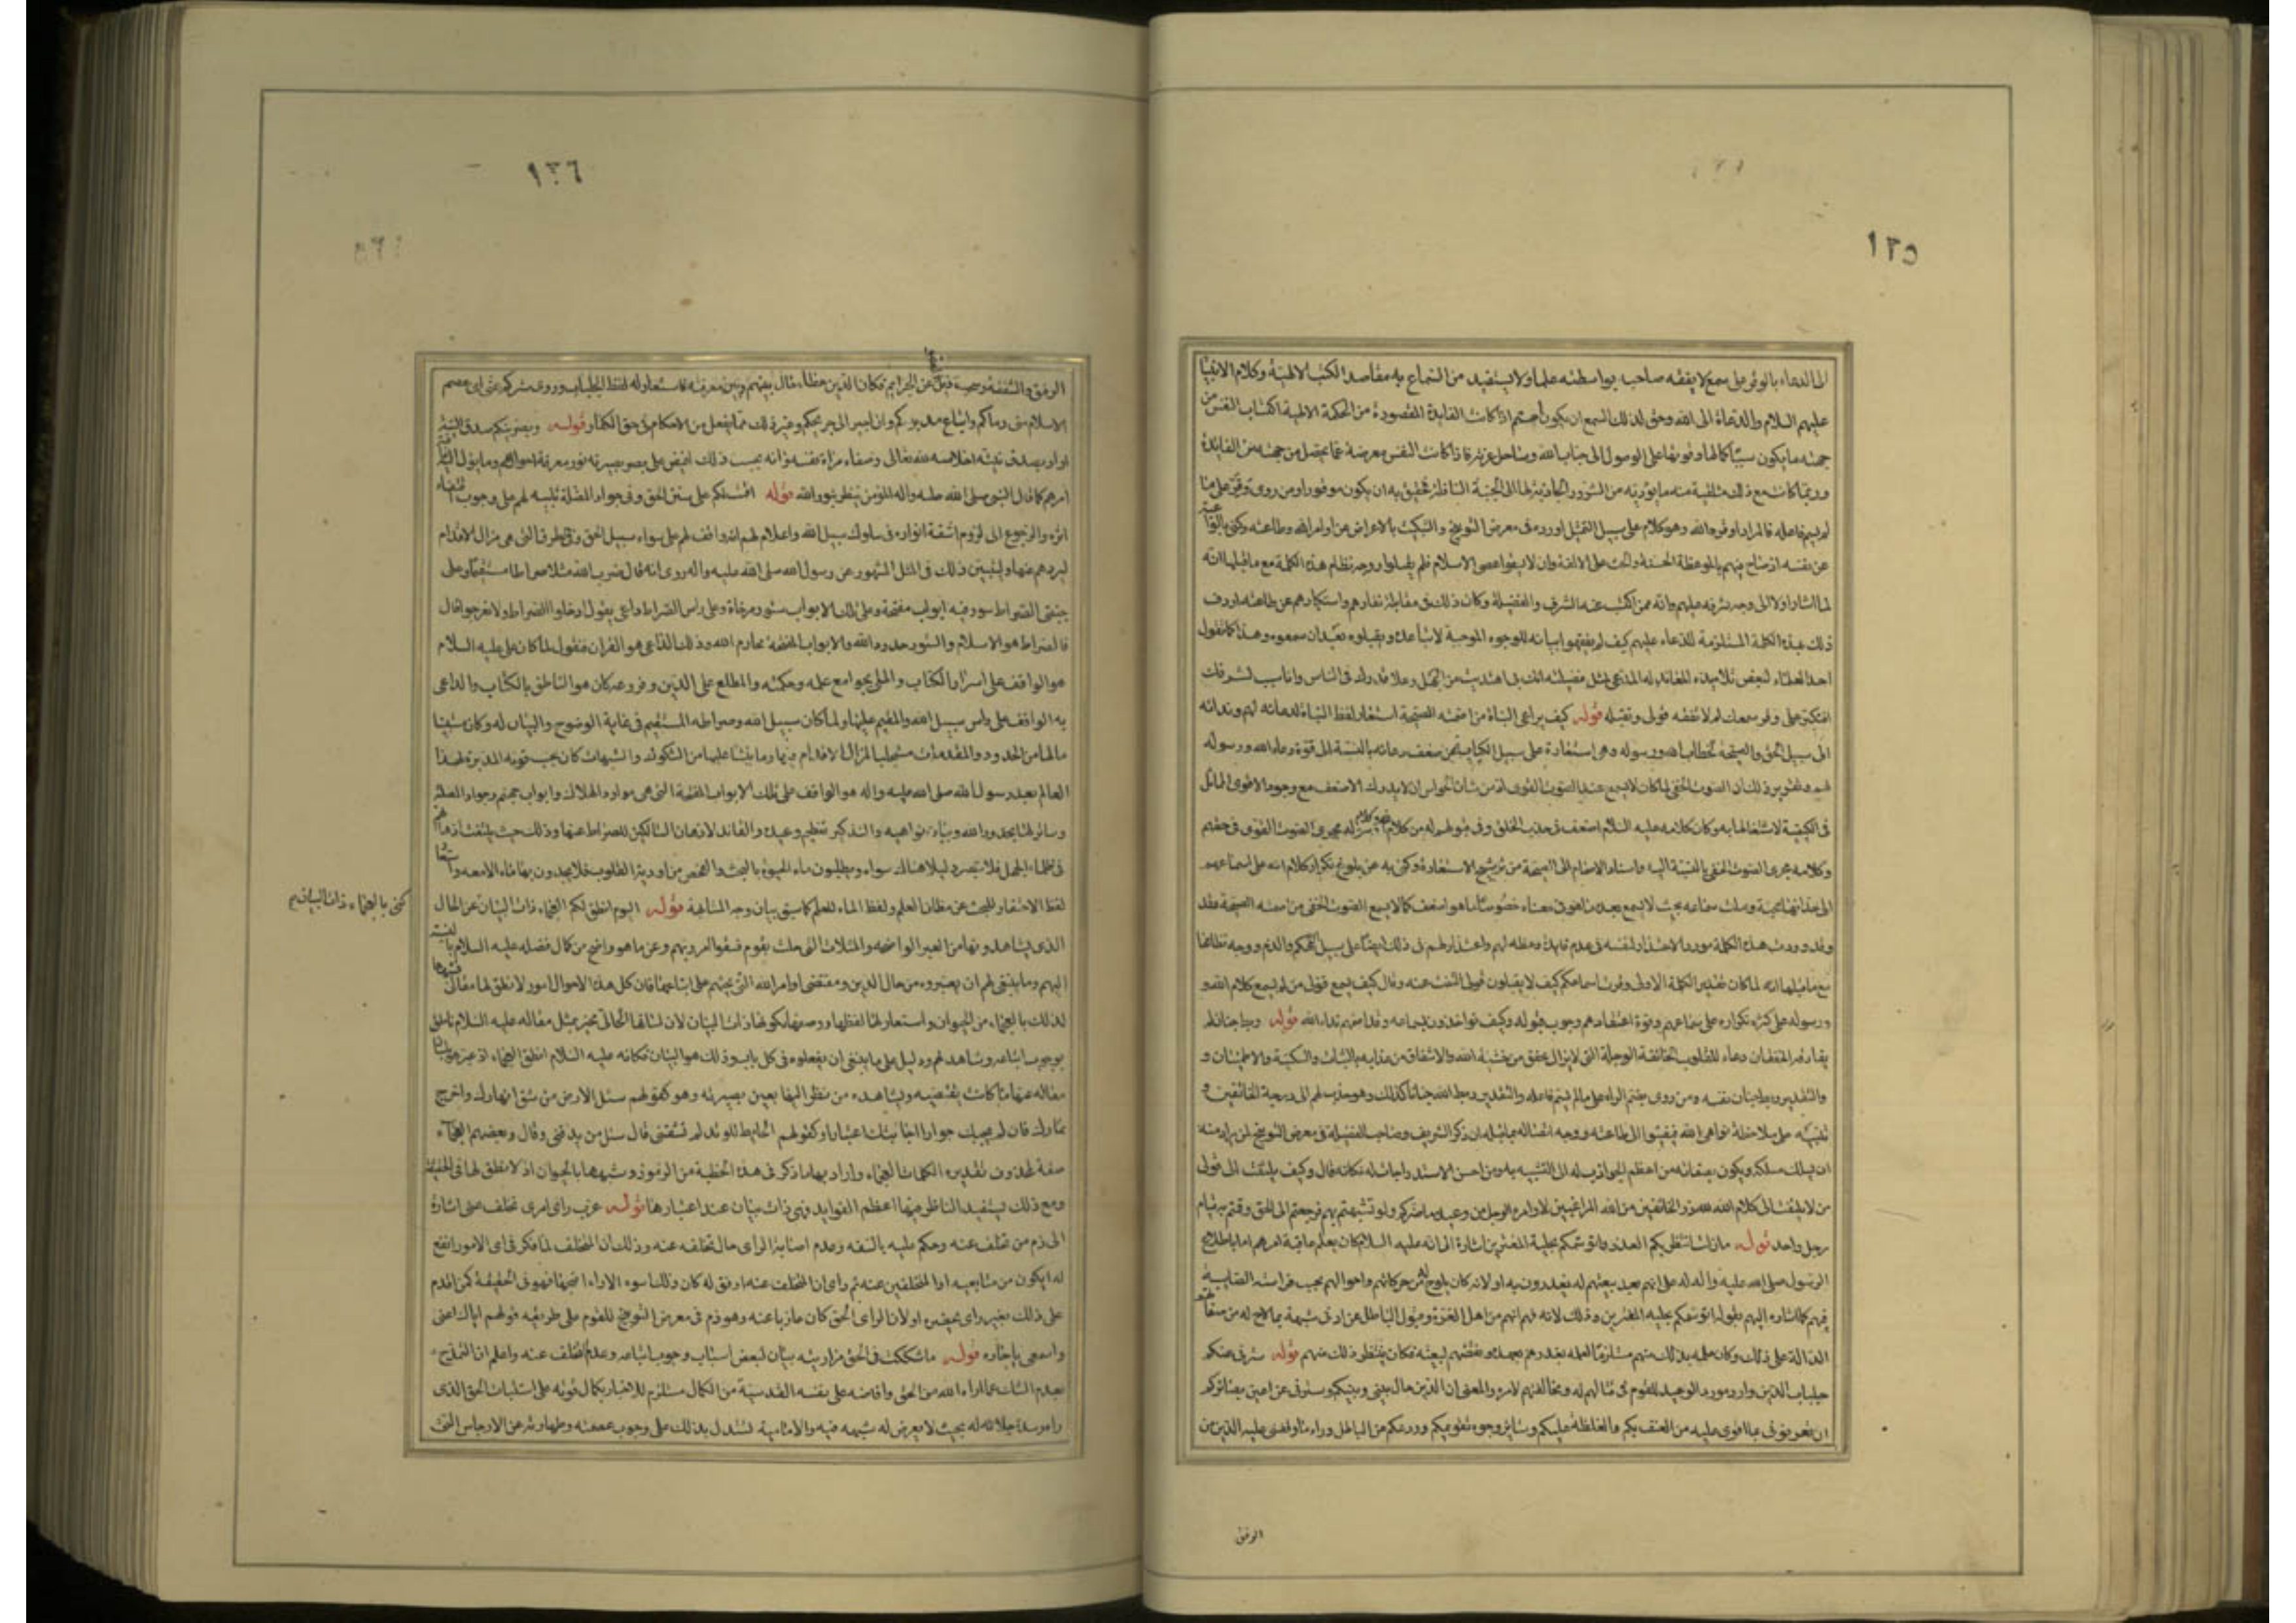 ١٢٥
الدعاء بالوقر على سمع لا يفقه صاحبه بواسطته علما ولا يستفيد من السماع به مقاصد الكتب الالهية وكلام الانبيا
عليهم السلام والدعاة الى الله وحق لذلك السمع ان يكون اصم اذا كانت الفايدة المقصودة من الحكمة الالهية اكتساب النفس من
جهته ما يكون سببا لكمالها وقوتها على الوصول الى جناب الله وساحل عزته فاذا كانت النفس معرضة عما يحصل من جهته من الفائدة
وربما كانت مع ذلك متلقية منه ما يؤديه من الشرور الجاذبة لها الى الجنبة السافلة فحقيق به ان يكون موقورا ومن روى وقر على ما
لم يسم فاعله فالمراد وقره الله وهو كلام على سبيل التمثيل اورده في معرض التوبيخ والتبكيت بالاعراض عن اوامر الله وطاعته وكنى بالواعية
عن نفسه اذ صاح فيهم بالموعظة الحسنة والحث على الالفة وان لا يشقوا عصى الاسلام فلم يقبلوا ووجه نظام هذه الكلمة مع ما قبلها انه
لما اشار اولا الى وجه شرفه عليهم وانه ممن اكتسب عنه الشرف والفضيلة وكان ذلك في مقابلة نفارهم واستكبارهم عن طاعته اردف
ذلك بهذه الكلمة المستلزمة للدعاء عليهم كيف لم يفقهوا بيانه للوجوه الموجبة لاتباعه ويقبلوه بعد ان سمعوه وهذا كما نقول
احد العلماء لبعض تلاميذه المعاند له المدعي لمثل فضيلته انك بي اهتديت من الجهل وعلا قدرك في الناس وانا سبب لشرفك
افتتكبر علي وقر سمعك لم لا تفقه قولي وتقبله قوله كيف يراعي النباة من اصمته الصيحة استعار لفظ النباة لدعائه لهم وندائه
الى سبيل الحق والصيحة لخطاب الله ورسوله وهي استعارة على سبيل الكناية عن ضعف دعائه بالنسبة الى قوة دعاء الله ورسوله
لهم وتقرير ذلك ان الصوت الخفي لما كان لا يسمع عند الصوت القوي اذ من شان الحواس ان لا يدرك الاضعف مع وجود الاقوى المماثل
في الكيفية لاشتغالها به وكان كلامه عليه السلام اضعف في جذب الخلق وفي قبولهم له من كلام الله وكلام رسوله مجرى الصوت القوي في حقهم
وكلامه مجرى الصوت الخفي بالنسبة اليه واسناد الاصمام الى الصيحة من ترشيح الاستعارة وكنى به عن بلوغ تكرار كلام الله على اسماعهم
وقد وردت هذه الكلمة مورد الاعتذار لنفسه في عدم فايدة وعظه لهم واعتذار لهم في ذلك ايضا على سبيل التهكم والذم ووجه نظامها
مع ما قبلها انه لما كان تقدير الكلمة الاولى وقرت اسماعكم كيف لا يقبلون قولي التفت عنه وقال كيف يسمع قولي من لم يسمع كلام الله و
ورسوله على كثرة تكراره على سماعهم وقوة اعتقادهم وجوب قبوله وكيف نؤاخذون بسماعه وقد اصمهم نداء الله قوله ربط جنان لم
يفارقه الخفقان دعاء للقلوب الخائفة الوجلة التي لا يزال يخفق من خشية الله والاشفاق من عذابه بالثبات والسكينة والاطمينان و
والتقدير ربط جنان نفسه ومن روى بضم الراء على ما لم يسم فاعله والتقدير ربط الله جنانا كذلك وهو جذب لهم الى درجة الخائفين و
تنبيه على ملاحظة نواهي الله فيفيئوا الى طاعته ووجه اتصاله بما قبله ان ذكر الشريف وصاحب الفضيلة في معرض التوبيخ لمن يراد منه
ان يسلك مسلكه ويكون بصفاته من اعظم الجواذب له الى التشبه به ومن احسن الاستدراجات له فكانه قال وكيف يلتفت الى قولي
من لا يلتفت الى كلام الله لله در الخائفين من الله المراعيين لاوامره الوجلين من وعيده ما ضركم ولو تشبهتم بهم فرجعتم الى الحق وقمتم به قيام
رجل واحد قوله مازلت انتظر بكم الغدر واتوسمكم بحلية المغترين اشارة الى انه عليه السلام كان يعلم عاقبة امرهم اما باطلاع
الرسول صلى الله عليه واله له على انهم بعد بيعتهم له يغدرون به او لانه كان يلوح له من حركاتهم واحوالهم بحسب فراسته الصايبة
فيهم كما اشار اليهم بقوله اتوسمكم بحلية المغترين وذلك لانه فهم انهم من اهل الغرة وقبول الباطل عن ادنى شبهة بما لاح له من صفاتهم
الدالة على ذلك وكان علمه بذلك منهم مستلزما لعلمه بغدرهم بعهده ونقضهم لبيعته فكان ينتظر ذلك منهم قوله سترني عنكم
جلباب الدين وارد مورد الوعيد للقوم في قتالهم له ومخالفتهم لامره والمعنى ان الدين حال بيني وبينكم وسترني عن اعين بصائركم
ان تعرفوني بما اقوى عليه من العنف بكم والغلظة عليكم وساير وجوه تقويمكم وردعكم من الباطل وراء ما وقفني عليه الدين من
الرفق
١٢٦
الرفق والشفقة وحسبه ذيل العفو عن الجرايم فكان الدين غطاء حال بينهم وبين معرفته فاستعار له لفظ الجلباب وروى ستركم عني اي عصم
الاسلام مني دماكم واتباع مدبركم وان اجهز الى جريحكم وغير ذلك مما يفعل من الاحكام في حق الكفار قوله وبصرنيكم صدق النية
اراد بصدق نيته اخلاصه لله تعالى وصفاء مراة نفسه وانه بحسب ذلك افيض على بصر بصيرته نور معرفة احوالهم وما يؤل اليه عاقبة
امرهم كما قال النبي صلى الله عليه واله المؤمن ينظر بنور الله قوله اقمت لكم على سنن الحق وفي جواد المضلة تنبيه لهم على وجوب اقتفاء
اثره والرجوع الى لزوم اشعة انواره في سلوك سبيل الله واعلام لهم انه واقف لهم على سواء سبيل الحق وفي طرق التي هي مزال الاقدام
ليردهم عنها وليتبين ذلك في المثل المشهور عن رسول الله صلى الله عليه واله روى انه قال ضرب الله مثلا صراطا مستقيما وعلى
جنبتي الصراط سور فيه ابواب مفتحة وعلى تلك الابواب ستور مرخاة وعلى راس الصراط داعي يقول ادخلوا الصراط ولا تعرجوا قال
فالصراط هو الاسلام والستور حدود الله والابواب المفتحة محارم الله وذلك الداعي هو القران فنقول لما كان علي عليه السلام
هو الواقف على اسرار الكتاب والملي بجوامع علمه وحكمته والمطلع على الدين وفروعه كان هو الناطق بالكتاب والداعي
به الواقف على راس سبيل الله والمقيم عليها ولما كان سبيل الله وصراطه المستقيم في غاية الوضوح والبيان له وكان مستبينا
مالها من الحدود والمقدمات مستجليا لمزال الاقدام فيها وما ينشا عليها من الشكوك والشبهات كان بحسب قوته المدبرة لهذا
العالم بعد رسول الله صلى الله عليه واله هو الواقف على تلك الابواب المفتحة التي هي موارد الهلاك وابواب جهنم وجواد المضلة
وساتر لها بحدود الله وبيان نواهيه والتذكير بعظيم وعيده والقائد لاذهان السالكين للصراط عنها وذلك حيث يلتفت اذهانهم
في ظلماء الجهل فلا تبصر دليلا هناك سواه ويطلبون ماء الحيوة بالبحث والفحص من اودية القلوب فلا يجدون بها ماء الا معه واستعار
لفظ الاحتفار للبحث عن مظان العلم ولفظ الماء للعلم كما سبق بيان وجه المشابهة قوله اليوم انطق لكم العجماء ذات البيان عن الحال
كنى بالعجماء ذات البيان
الذي يشاهدونها من العبر الواضحة والمثلات التي حلت بقوم فسقوا امر ربهم وعن ما هو واضح من كمال فضله عليه السلام بالنسبة
اليهم وما ينبغي لهم ان يعتبروه من حال الدين ومقتضى اوامر الله التي يحثهم على اتباعها فان كل هذه الاحوال امور لا نطق لها مقالي فشبهها
لذلك بالعجماء من الحيوان واستعار لها لفظها ووصفها بكونها ذات البيان لان لسانها الحالي مخبر بمثل مقاله عليه السلام ناطق
بوجوب اتباعه وشاهد لهم ودليل على ما ينبغي ان يفعلوه في كل باب وذلك هو البيان فكانه عليه السلام انطق العجماء اذ عبر هو بلسان
مقاله عنها ما كانت يقتضيه ويشاهده من نظر اليها بعين بصيرته وهو كقولهم سل الارض من شق انهارك واخرج
ثمارك فان لم يجبك جوارا اجابتك اعتبارا وكقولهم قال الحايط للوتد لم تشقني قال سل من يدقني وقال بعضهم العجماء
صفة لمحذوف تقديره الكلمات العجماء واراد بها ما ذكر في هذه الخطبة من الرموز وشبهها بالحيوان اذ لا نطق لها في الحقيقة
ومع ذلك يستفيد الناظر فيها اعظم الفوايد فهي ذات بيان عند اعتبارها قوله عزب راي امرئ تخلف عني اشارة
الى ذم من تخلف عنه وحكم عليه بالسفه وعدم اصابة الراى حال تخلفه عنه وذلك ان المتخلف لما فكر في اي الامور انفع
له ايكون من متابعيه او المتخلفين عنه ثم راى ان التخلف عنه اوفق له كان ذلك اسوء الاراء اقبحها فهو في الحقيقة كمن اقدم
على ذلك بغير راى بحضره او لان الراى الحق كان عازبا عنه وهو ذم في معرض التوبيخ للقوم على طريقة قولهم اياك اعني
واسمعي يا جاره قوله ما شككت في الحق مذ اريته بيان لبعض اسباب وجوب اتباعه وعدم التخلف عنه واعلم ان التمدح
بعدم الشك عما اراه الله من الحق وافاضه على نفسه القدسية من الكمال مستلزم للاخبار بكمال قوته على استثبات الحق الذي
راه وشدة جلائه له بحيث لا يعرض له شبهه فيه والامامية تستدل بذلك على وجوب عصمته وطهارته عن الارجاس التي